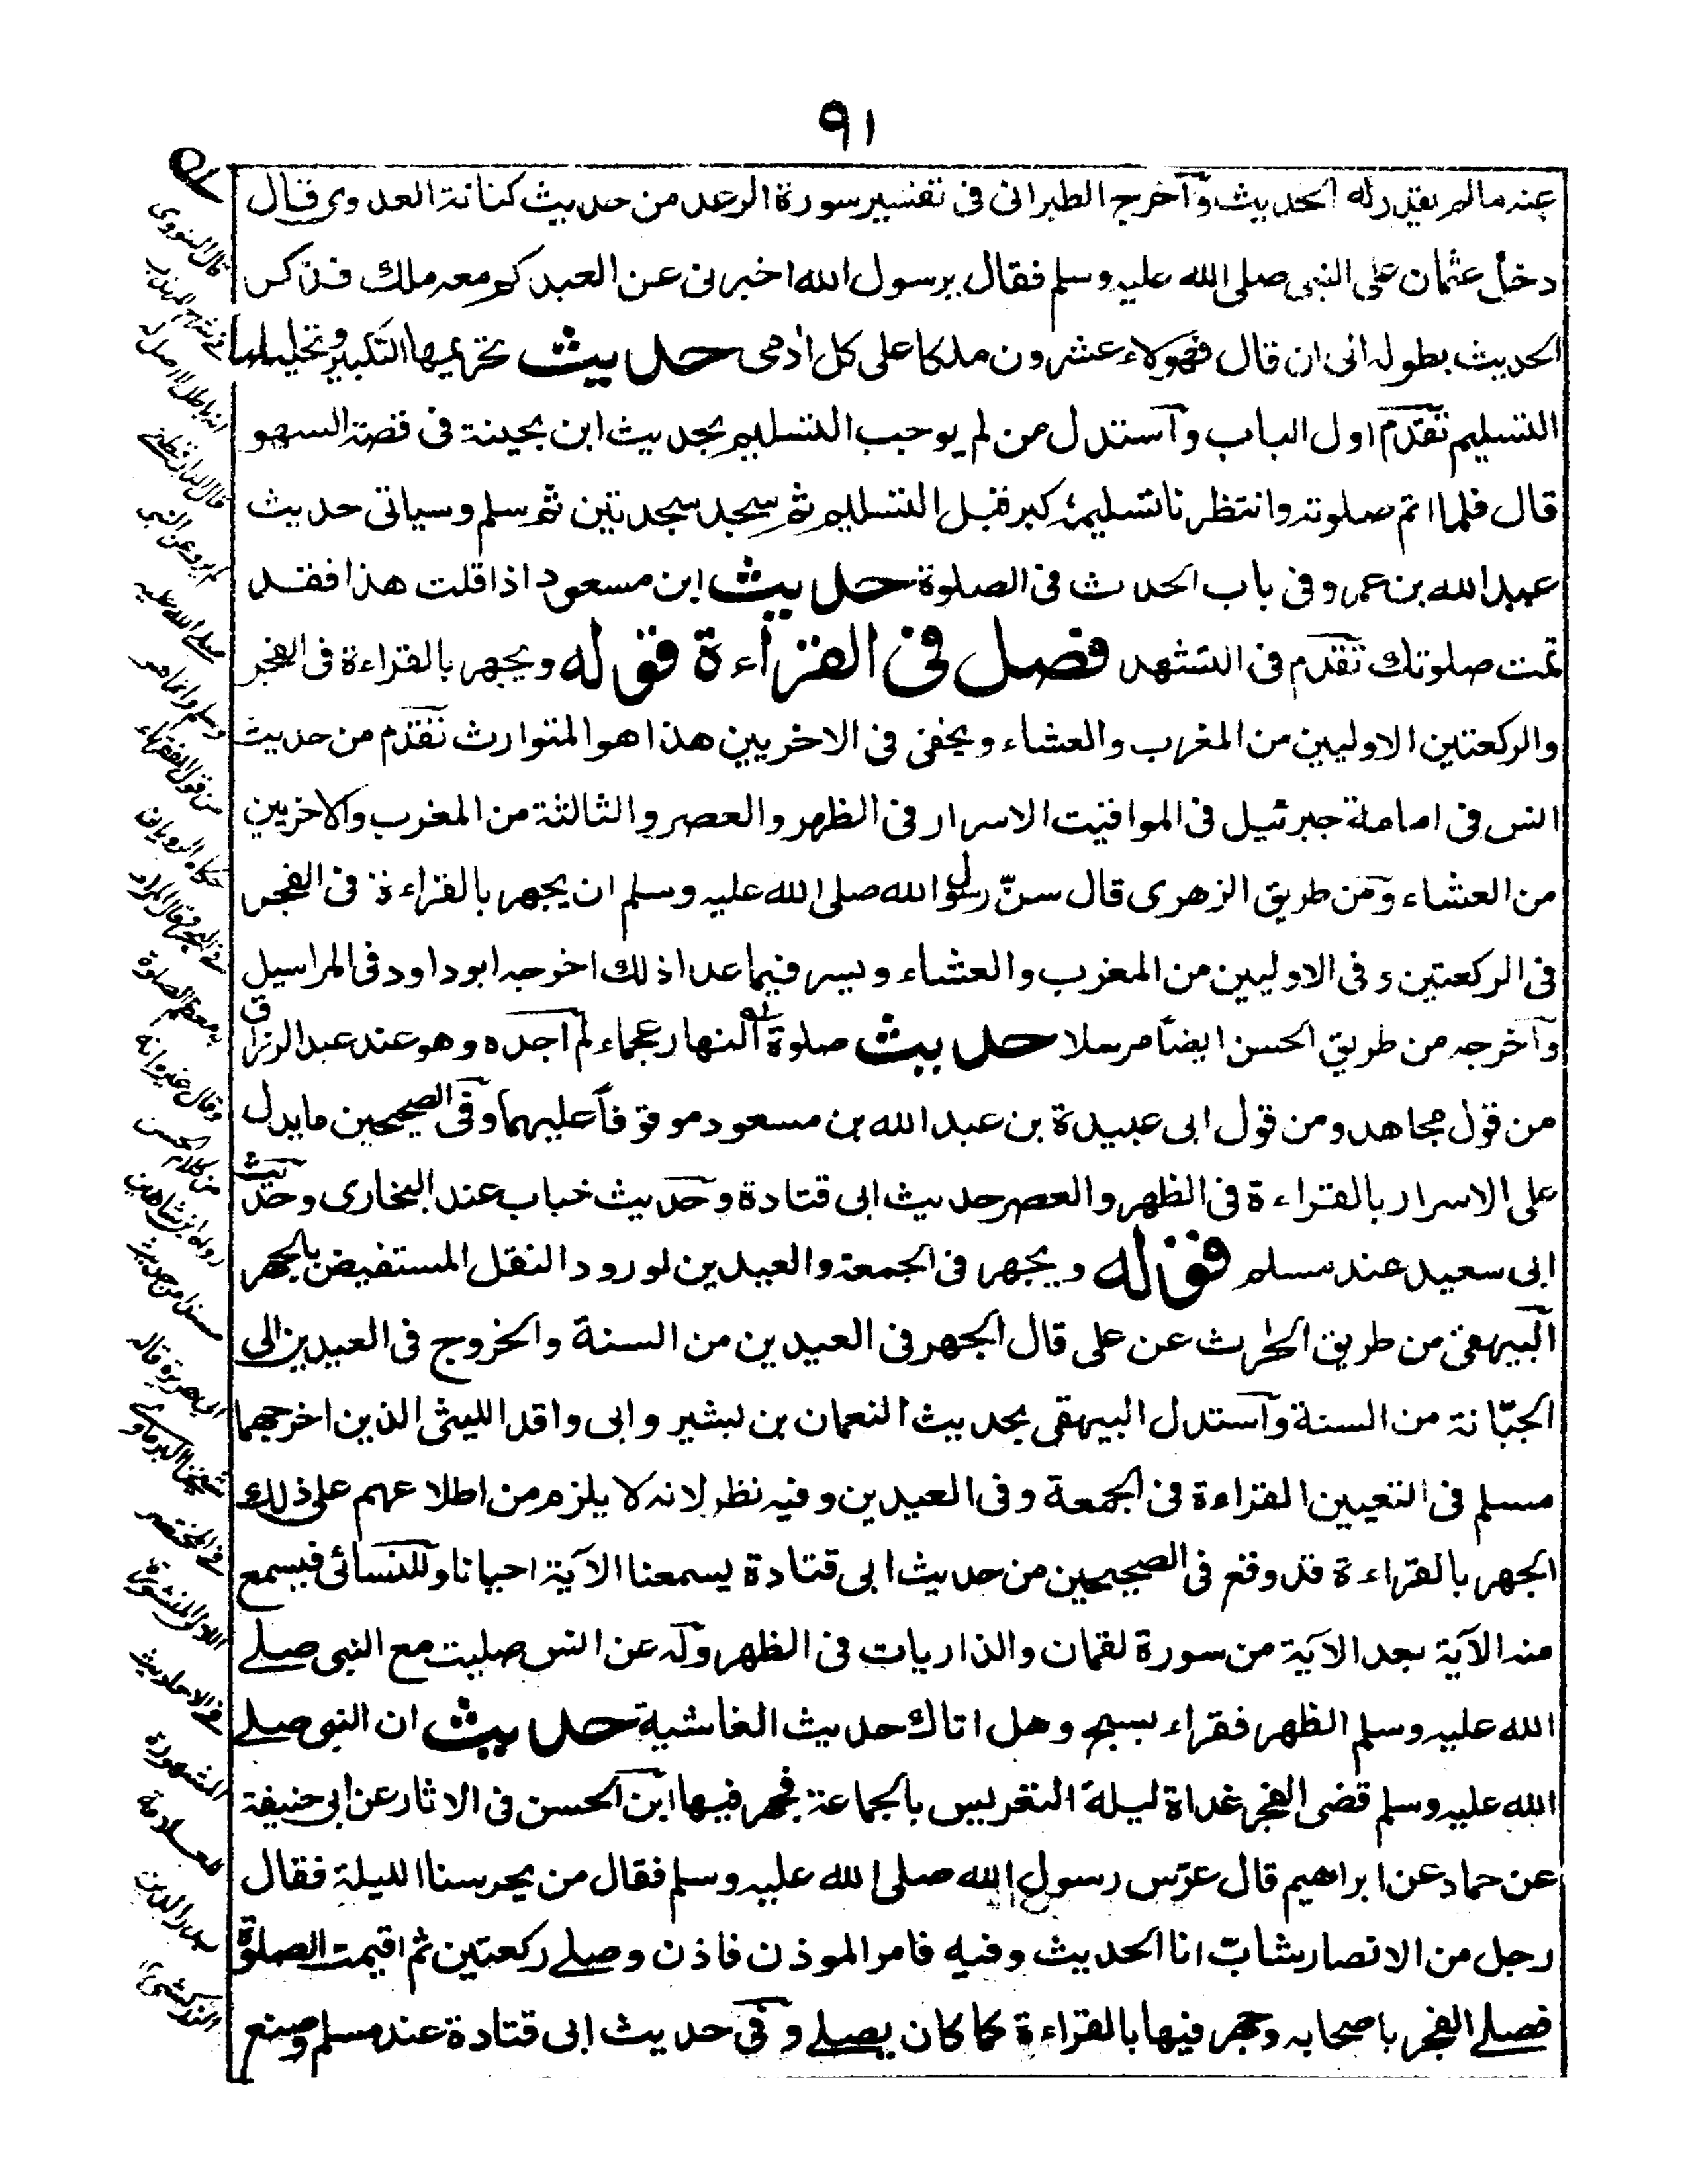 ٩١
عنه مالم يقدر له الحديث وآخرج الطبرانى فى تفسير سورة الرعد من حديث كنانة العدوى قال
دخل عثمان على النبى صلى الله عليه وسلم فقال يرسول الله اخبرنى عن العبد كم معه ملك فذكر
الحديث بطوله الى ان قال فهولاء عشرون ملكا على كل ادمى حديث تحريمها التكبير وتحليلها
التسليم تقدم اول الباب وآستدل من لم يوجب التسليم بحديث ابن بحينة فى قصة السهو
قال فلما اتم صلوته وانتظرنا تسليمه كبر قبل التسليم ثم سجد سجدتين ثم سلم وسياتى حديث
عبد الله بن عمرو فى باب الحدث فى الصلوة حديث ابن مسعود اذا قلت هذا فقد
تمت صلوتك تقدم فى التشهد فصل فى القرآءة قوله ويجهر بالقراءة فى الفجر
والركعتين الاوليين من المغرب والعشاء ويخفى فى الاخريين هذا هو المتوارث تقدم من حديث
انس فى امامة جبرئيل فى المواقيت الاسرار فى الظهر والعصر والثالثة من المغرب والاخريين
من العشاء ومن طريق الزهرى قال سنّ رسول الله صلى الله عليه وسلم ان يجهر بالقراءة فى الفجر
فى الركعتين وفى الاوليين من المغرب والعشاء ويسر فيما عدا ذلك اخرجه ابو داود فى المراسيل
وآخرجه من طريق الحسن ايضا مرسلا حديث صلوة النهار عجماء لم اجده وهو عند عبد الرزاق
من قول مجاهد ومن قول ابى عبيدة بن عبد الله بن مسعود موقوفا عليهما وفى الصحيحين ما يدل
على الاسرار بالقراءة فى الظهر والعصر حديث ابى قتادة وحديث خباب عند البخارى وحديث
ابى سعيد عند مسلم قوله ويجهر فى الجمعة والعيدين لورود النقل المستفيض بالجهر
البيهقى من طريق الحرث عن على قال الجهر فى العيدين من السنة والخروج فى العيدين الى
الجبّانة من السنة وآستدل البيهقى بحديث النعمان بن بشير وابى واقد الليثى الذين اخرجهما
مسلم فى التعيين القراءة فى الجمعة وفى العيدين وفيه نظر لانه لا يلزم من اطلاعهم على ذلك
الجهر بالقراءة قد وقع فى الصحيحين من حديث ابى قتادة يسمعنا الآية احيانا وللنسائى فيسمع
منه الآية بعد الآية من سورة لقمان والذاريات فى الظهر وله عن انس صليت مع النبى صلے
الله عليه وسلم الظهر فقراء بسبح وهل اتاك حديث الغاشية حديث ان النبى صلے
الله عليه وسلم قضى الفجر غداة ليلة التعريس بالجماعة فجهر فيها ابن الحسن فى الاثار عن ابى حنيفة
عن حماد عن ابراهيم قال عرّس رسول الله صلى الله عليه وسلم فقال من يحرسنا الليلة فقال
رجل من الانصار شابّ انا الحديث وفيه فامر الموذن فاذن وصلے ركعتين ثم اقيمت الصلوة
فصلے الفجر باصحابه وجهر فيها بالقراءة كما كان يصلے وفى حديث ابى قتادة عند مسلم وصنع
قال النووى
فى شرح المهذب
انه باطل لا اصل له
قال الدارقطنے
لم يرو عن النبى
صلے الله عليه
وسلم وانما هو
من قول الفقهاء
حكاه الرويانى
فے البحر قال المراد
معظم الصلوة
وقال غيره انه
من كلام الحسن
مسندا من حديث
فے المختصر
اللالى المنثورة
فے الاحاديث
المشهورة
للعلامة
بدر الدين
الزركشى